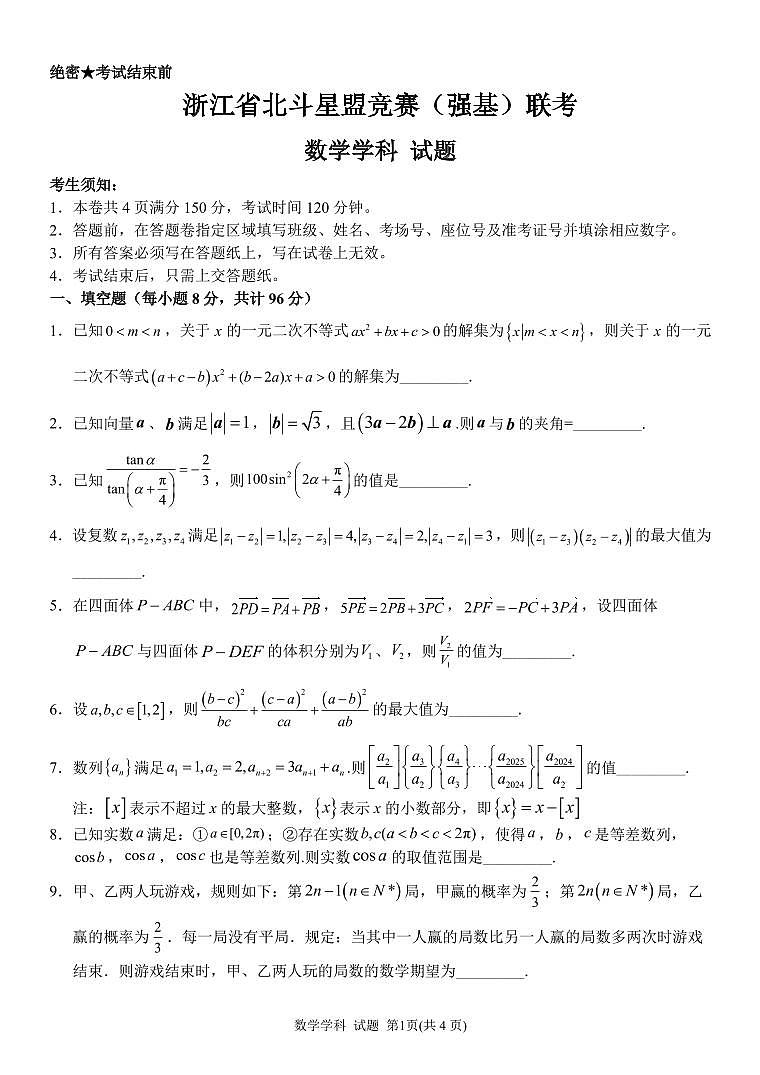 绝密★考试结束前
浙江省北斗星盟竞赛（强基）联考
数学学科 试题
考生须知：
1．本卷共 4 页满分 150 分，考试时间 120 分钟。
2．答题前，在答题卷指定区域填写班级、姓名、考场号、座位号及准考证号并填涂相应数字。
3．所有答案必须写在答题纸上，写在试卷上无效。
4．考试结束后，只需上交答题纸。
一、填空题（每小题 8 分，共计 96 分）
1．已知 0<m<n，关于 x 的一元二次不等式 ax²+bx+c>0 的解集为 {x|m<x<n}，则关于 x 的一元
二次不等式 (a+c−b)x²+(b−2a)x+a>0 的解集为_________.
2．已知向量 a、b 满足 |a|=1，|b|=√3，且 (3a−2b)⊥a.则 a 与 b 的夹角=_________.
3．已知 tanα/tan(α+π/4)=−2/3，则 100sin²(2α+π/4) 的值是_________.
4．设复数 z₁,z₂,z₃,z₄ 满足 |z₁−z₂|=1,|z₂−z₃|=4,|z₃−z₄|=2,|z₄−z₁|=3，则 |(z₁−z₃)(z₂−z₄)| 的最大值为
_________.
5．在四面体 P−ABC 中，2PD→=PA→+PB→，5PE→=2PB→+3PC→，2PF→=−PC→+3PA→，设四面体
P−ABC 与四面体 P−DEF 的体积分别为 V₁、V₂，则 V₂/V₁ 的值为_________.
6．设 a,b,c∈[1,2]，则 (b−c)²/bc+(c−a)²/ca+(a−b)²/ab 的最大值为_________.
7．数列{aₙ}满足 a₁=1,a₂=2,aₙ₊₂=3aₙ₊₁+aₙ.则 [a₂/a₁]{a₃/a₂}{a₄/a₃}···{a₂₀₂₅/a₂₀₂₄}[a₂₀₂₄/a₂] 的值_________.
注：[x]表示不超过 x 的最大整数，{x}表示 x 的小数部分，即{x}=x−[x]
8．已知实数 a 满足：①a∈[0,2π)；②存在实数 b,c(a<b<c<2π)，使得 a，b，c 是等差数列，
cosb，cosa，cosc 也是等差数列.则实数 cosa 的取值范围是_________.
9．甲、乙两人玩游戏，规则如下：第 2n−1(n∈N*) 局，甲赢的概率为 2/3；第 2n(n∈N*) 局，乙
赢的概率为 2/3．每一局没有平局．规定：当其中一人赢的局数比另一人赢的局数多两次时游戏
结束．则游戏结束时，甲、乙两人玩的局数的数学期望为_________.
数学学科 试题 第1页(共 4 页)